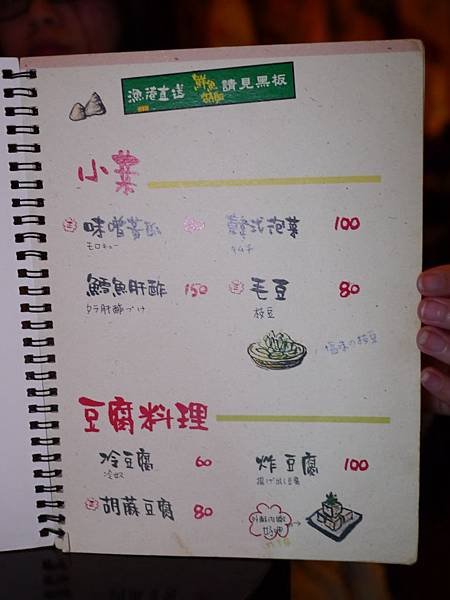 漁港直送 鮮魚 請見黑板
小菜
味噌 韓式泡菜 100
モロキュー キムチ
鱈魚肝酢 150 毛豆 80
タラ肝酢づけ 枝豆
塩味の枝豆
豆腐料理
冷豆腐 60 炸豆腐 100
冷奴 揚げ出し豆腐
胡蔴豆腐 80
外酥內嫩
好吃